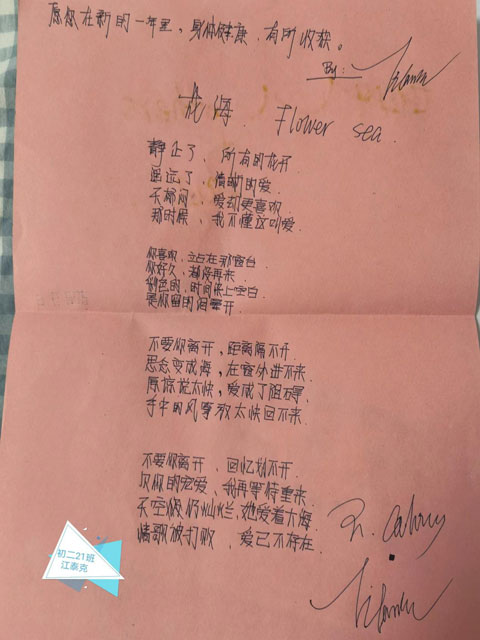 愿您在新的一年里,身体健康,有所收获。
By:
花海 Flower sea.
静止了、所有的花开
遥远了、清晰的爱.
天郁闷、爱却更喜欢.
那时候、我不懂这叫爱.
你喜欢,站在那窗台
你好久、都没再来
彩色的,时间染上空白
是你留的泪晕开.
不要你离开,距离隔不开.
思念变成海,在窗外进不来.
原谅说太快,爱成了阻碍.
手中的风筝放太快回不来.
不要你离开、回忆划不开.
欠你的宠爱、我再等待重来.
天空仍灿烂,她爱着大海
情歌被打败,爱已不存在.
初二21班
江泰克